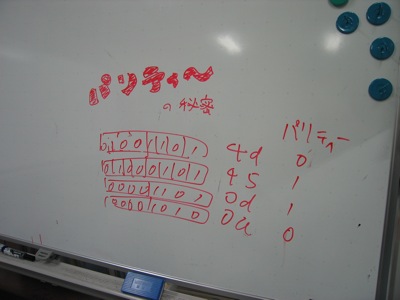 パリティ〜
の秘密
パリティー
01001101 4d 0
01000101 45 1
00001101 0d 1
00001010 0a 0